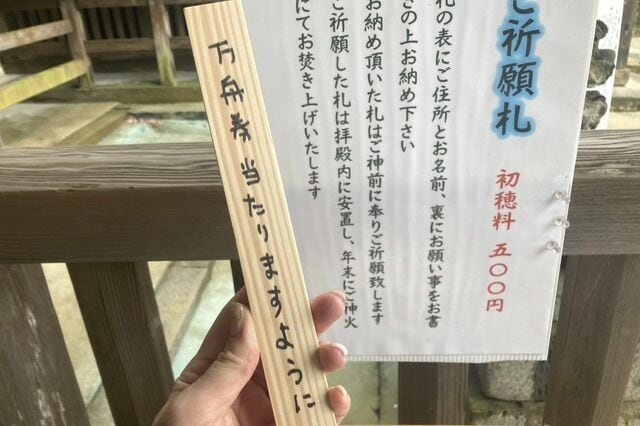 万舟券当たりますように
ご祈願札
初穂料 五〇〇円
札の表にご住所とお名前、裏にお願い事をお書
きの上お納め下さい
お納め頂いた札はご神前に奉りご祈願致します
ご祈願した札は拝殿内に安置し、年末にご神火
にてお焚き上げいたします